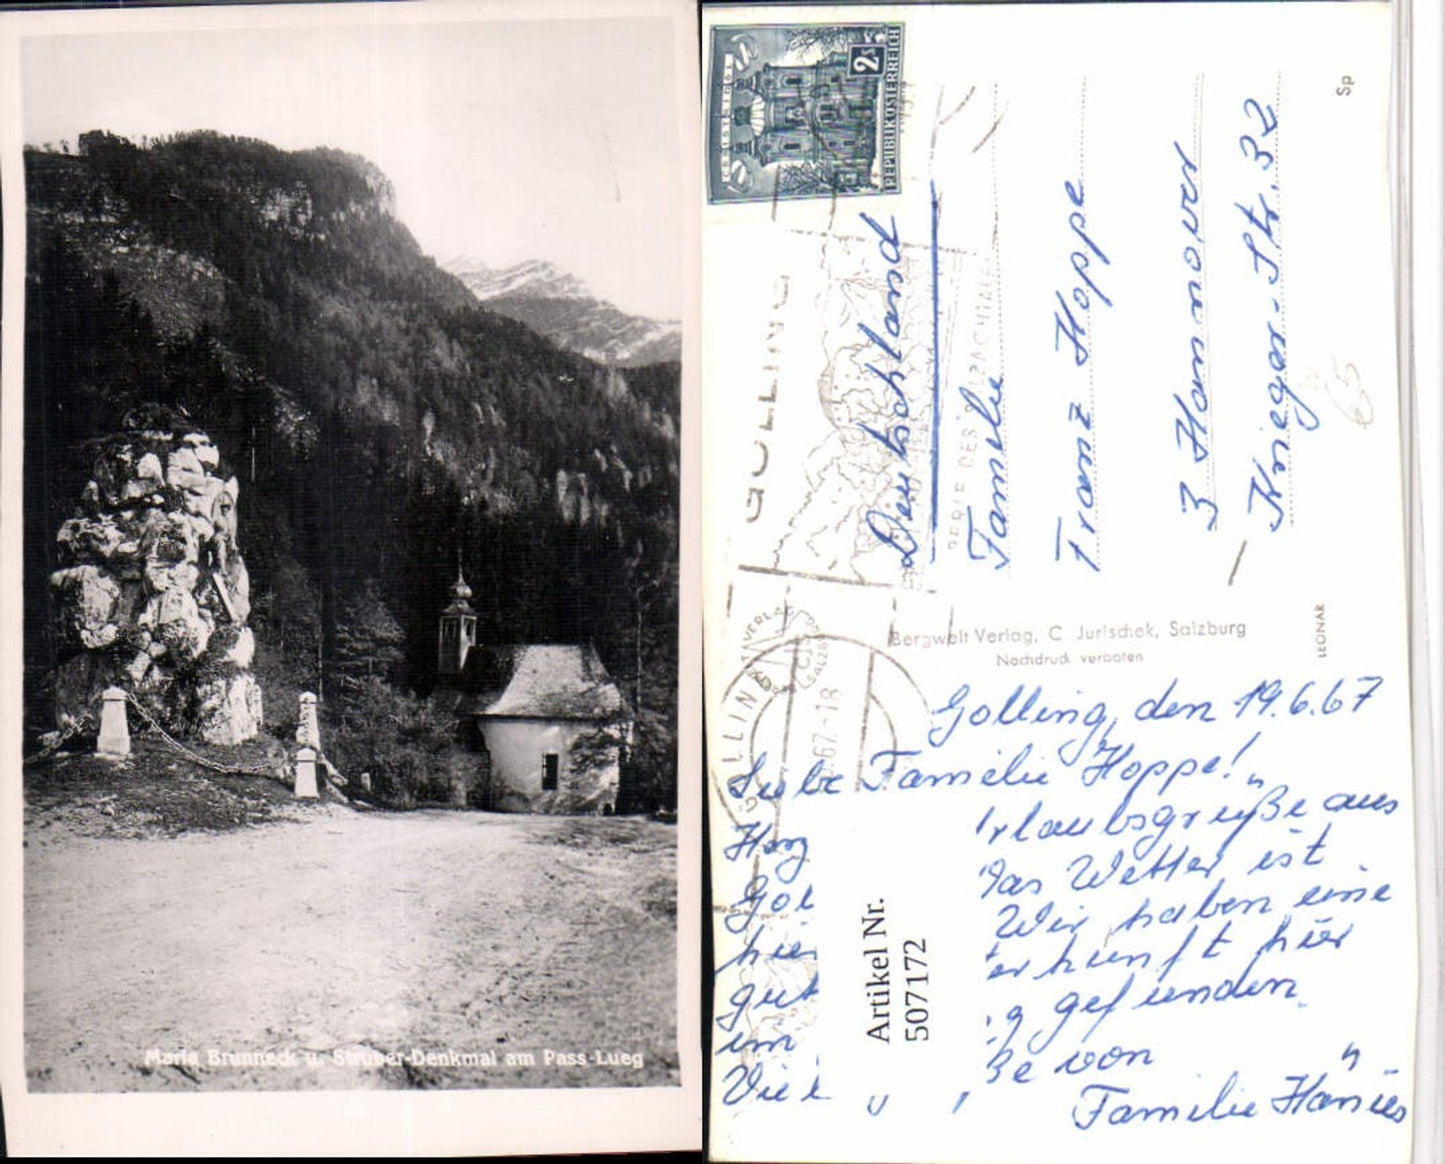 Maria Brunneck u. Struber-Denkmal am Pass-Lueg
2s
REPUBLIK ÖSTERREICH
GOLLING
Deutschland
Familie
Franz Hoppe
3 Hannover
Krieger-Str. 32
Sp
65
Bergwelt Verlag, C. Jurischek, Salzburg
Nachdruck verboten
LEONAR
67-18
Golling, den 19.6.67
Liebe Familie Hoppe!
Herz rlaubsgrüße aus
Gol Das Wetter ist
hier Wir haben eine
gut erkunft hier
im g gefunden.
Viel ße von
Familie
Artikel Nr.
507172